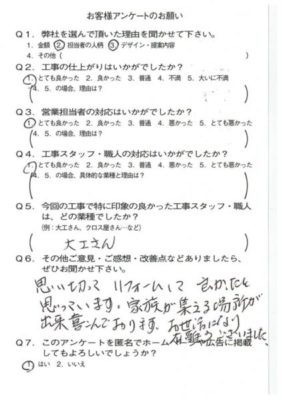 お客様アンケートのお願い
Q1．弊社を選んで頂いた理由を聞かせて下さい。
1．金額 ②担当者の人柄 ③デザイン・提案内容
4．その他（　　　）
Q2．工事の仕上がりはいかがでしたか？
①とても良かった 2．良かった 3．普通 4．不満 5．大いに不満
4．5．の場合、理由は？
Q3．営業担当者の対応はいかがでしたか？
①とても良かった 2．良かった 3．普通 4．悪かった 5．とても悪かった
4．5．の場合、理由は？
Q4．工事スタッフ・職人の対応はいかがでしたか？
①とても良かった 2．良かった 3．普通 4．悪かった 5．とても悪かった
4．5．の場合、具体的な業種と理由は？
Q5．今回の工事で特に印象の良かった工事スタッフ・職人
は、どの業種でしたか？
（例：大工さん、クロス屋さん…など）
大工さん
Q6．その他ご意見・ご感想・改善点などありましたら、
ぜひお聞かせ下さい。
思い切って リフォームして 良かったと
思っています。家族が集える場所が
出来喜んでおります。お世話になり
有難うございました。
Q7．このアンケートを匿名でホームページや広告に掲載
してもよろしいでしょうか？
①はい 2．いいえ